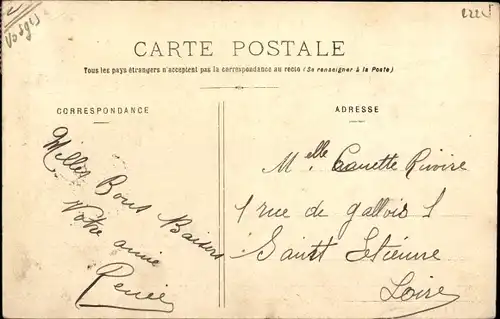 Vosges
CARTE POSTALE
Tous les pays étrangers n'acceptent pas la correspondance au recto (Se renseigner à la Poste)
CORRESPONDANCE
ADRESSE
Milles Bons Baisers
Votre amie
Renée
Melle Rivire
1 rue de gallois 1
Saint Etienne
Loire